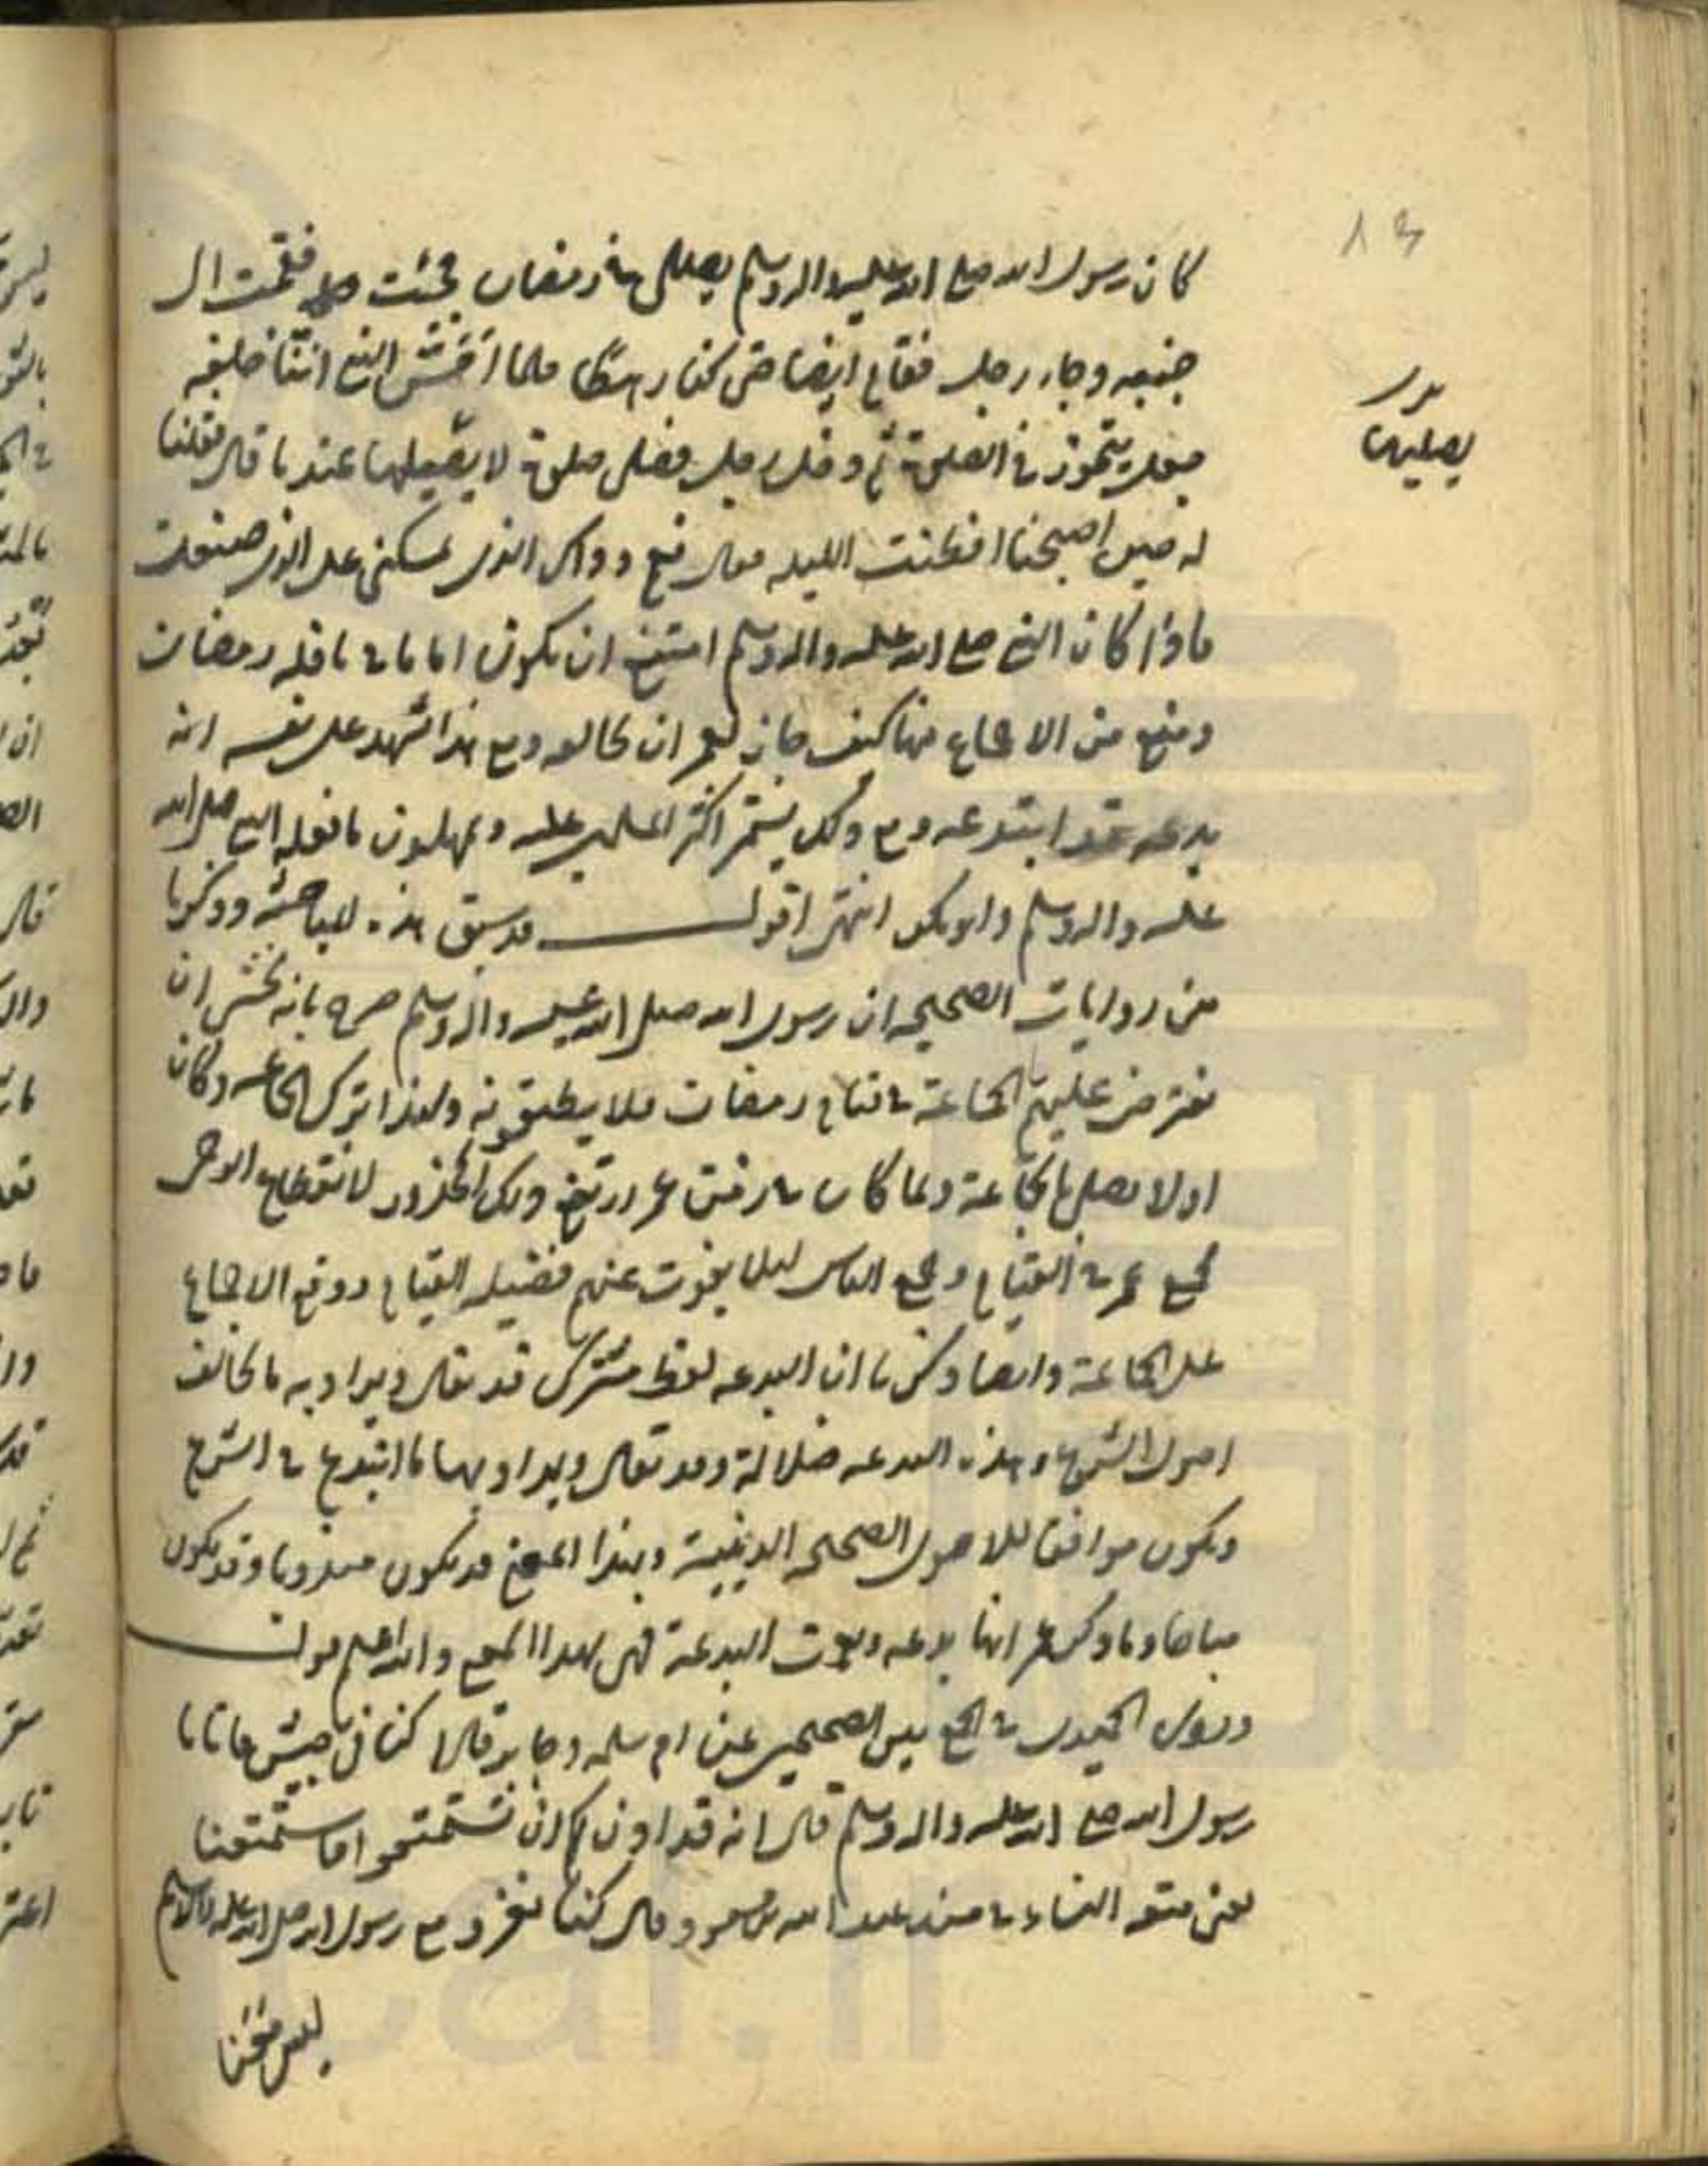 ١٣
كان رسول الله صلى الله عليه واله وسلم يصلى فى رمضان فجئت فقمت الى
جنبه وجاء رجل فقام ايضا حتى كنا رهطا فلما احس النبى اننا خلفه
جعل يتجوز فى الصلوة ثم دخل رحله فصلى صلوة لا يصليها عندنا قال فقلنا
يصليها
له حين اصبحنا افطنت الليله فقال نعم ذاك الذى حملنى على الذى صنعت
فاذا كان النبى صلى الله عليه واله وسلم امتنع ان يكون اماما فى نافله رمضان
ومنع من الاجتماع فيها كيف جاز لعمر ان يخالفه ومع هذا شهد على نفسه انه
بدعه فقد ابتدعه ومع ذلك يستمر اكثر المسلمين عليه ويهملون ما فعله النبى صلى الله
عليه واله وسلم وابو بكر انتهى اقول قد سبق هذه المباحثه وذكرنا
من روايات الصحيحه ان رسول الله صلى الله عليه واله وسلم صرح بانه يخشى ان
يفترض عليهم الجماعة فى قيام رمضان فلا يطيقونه ولهذا ترك الجماعه وكان
اولا يصلى بالجماعة ولما كان زمن عمر ارتفع ذلك المحذور لانقطاع الوحى
جمع عمر فى القيام وجمع الناس لئلا يفوت عنهم فضيله القيام ووقع الاجماع
على الجماعة وايضا ذكرنا ان البدعه لفظ مشترك قد يقال ويراد به ما يخالف
اصول الشرع وهذه البدعه ضلالة وقد يقال ويراد بها ما ابتدع فى الشرع
ويكون موافقا للاصول الصحيحه الدينية وبهذا المعنى قد يكون مندوبا وقد يكون
مباحا وما ذكر عمر انها بدعه ونعمت البدعة فهى بهذا المعنى والله اعلم قوله
وروى الحميدى فى الجمع بين الصحيحين عن ام سلمه وجابر قالا كنا فى جيش فاتانا
رسول الله صلى الله عليه واله وسلم قال انه قد اذن لكم ان تستمتعوا فاستمتعنا
يعنى متعه النساء فى مسند عبد الله بن مسعود قال كنا نغزو مع رسول الله صلى الله عليه واله وسلم
ليس معنا